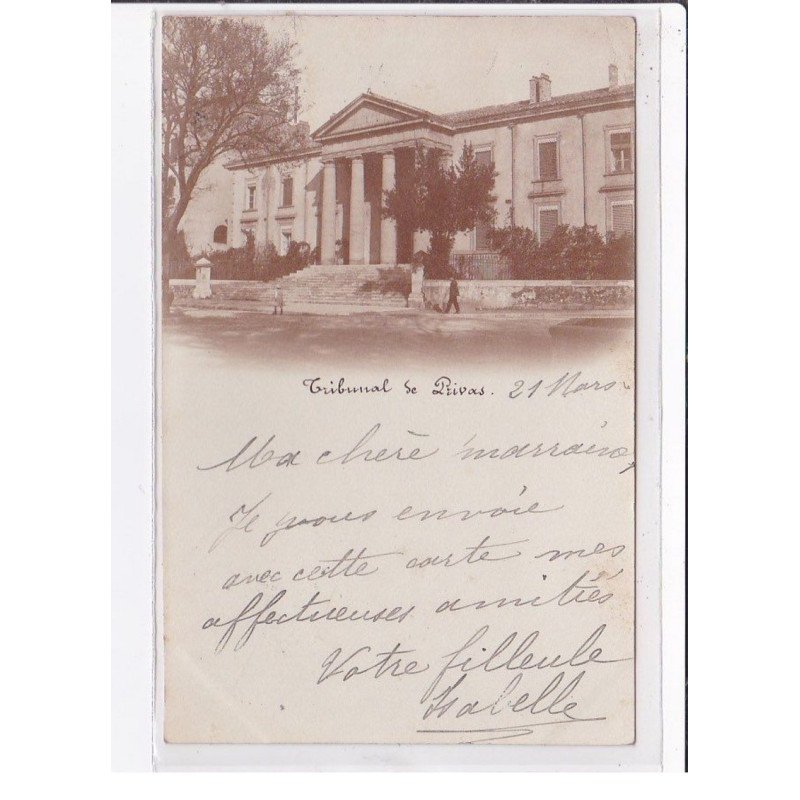 Tribunal de Privas. 21 Mars
Ma chère marraine,
Je vous envoie
avec cette carte mes
affectueuses amitiés
Votre filleule
Isabelle